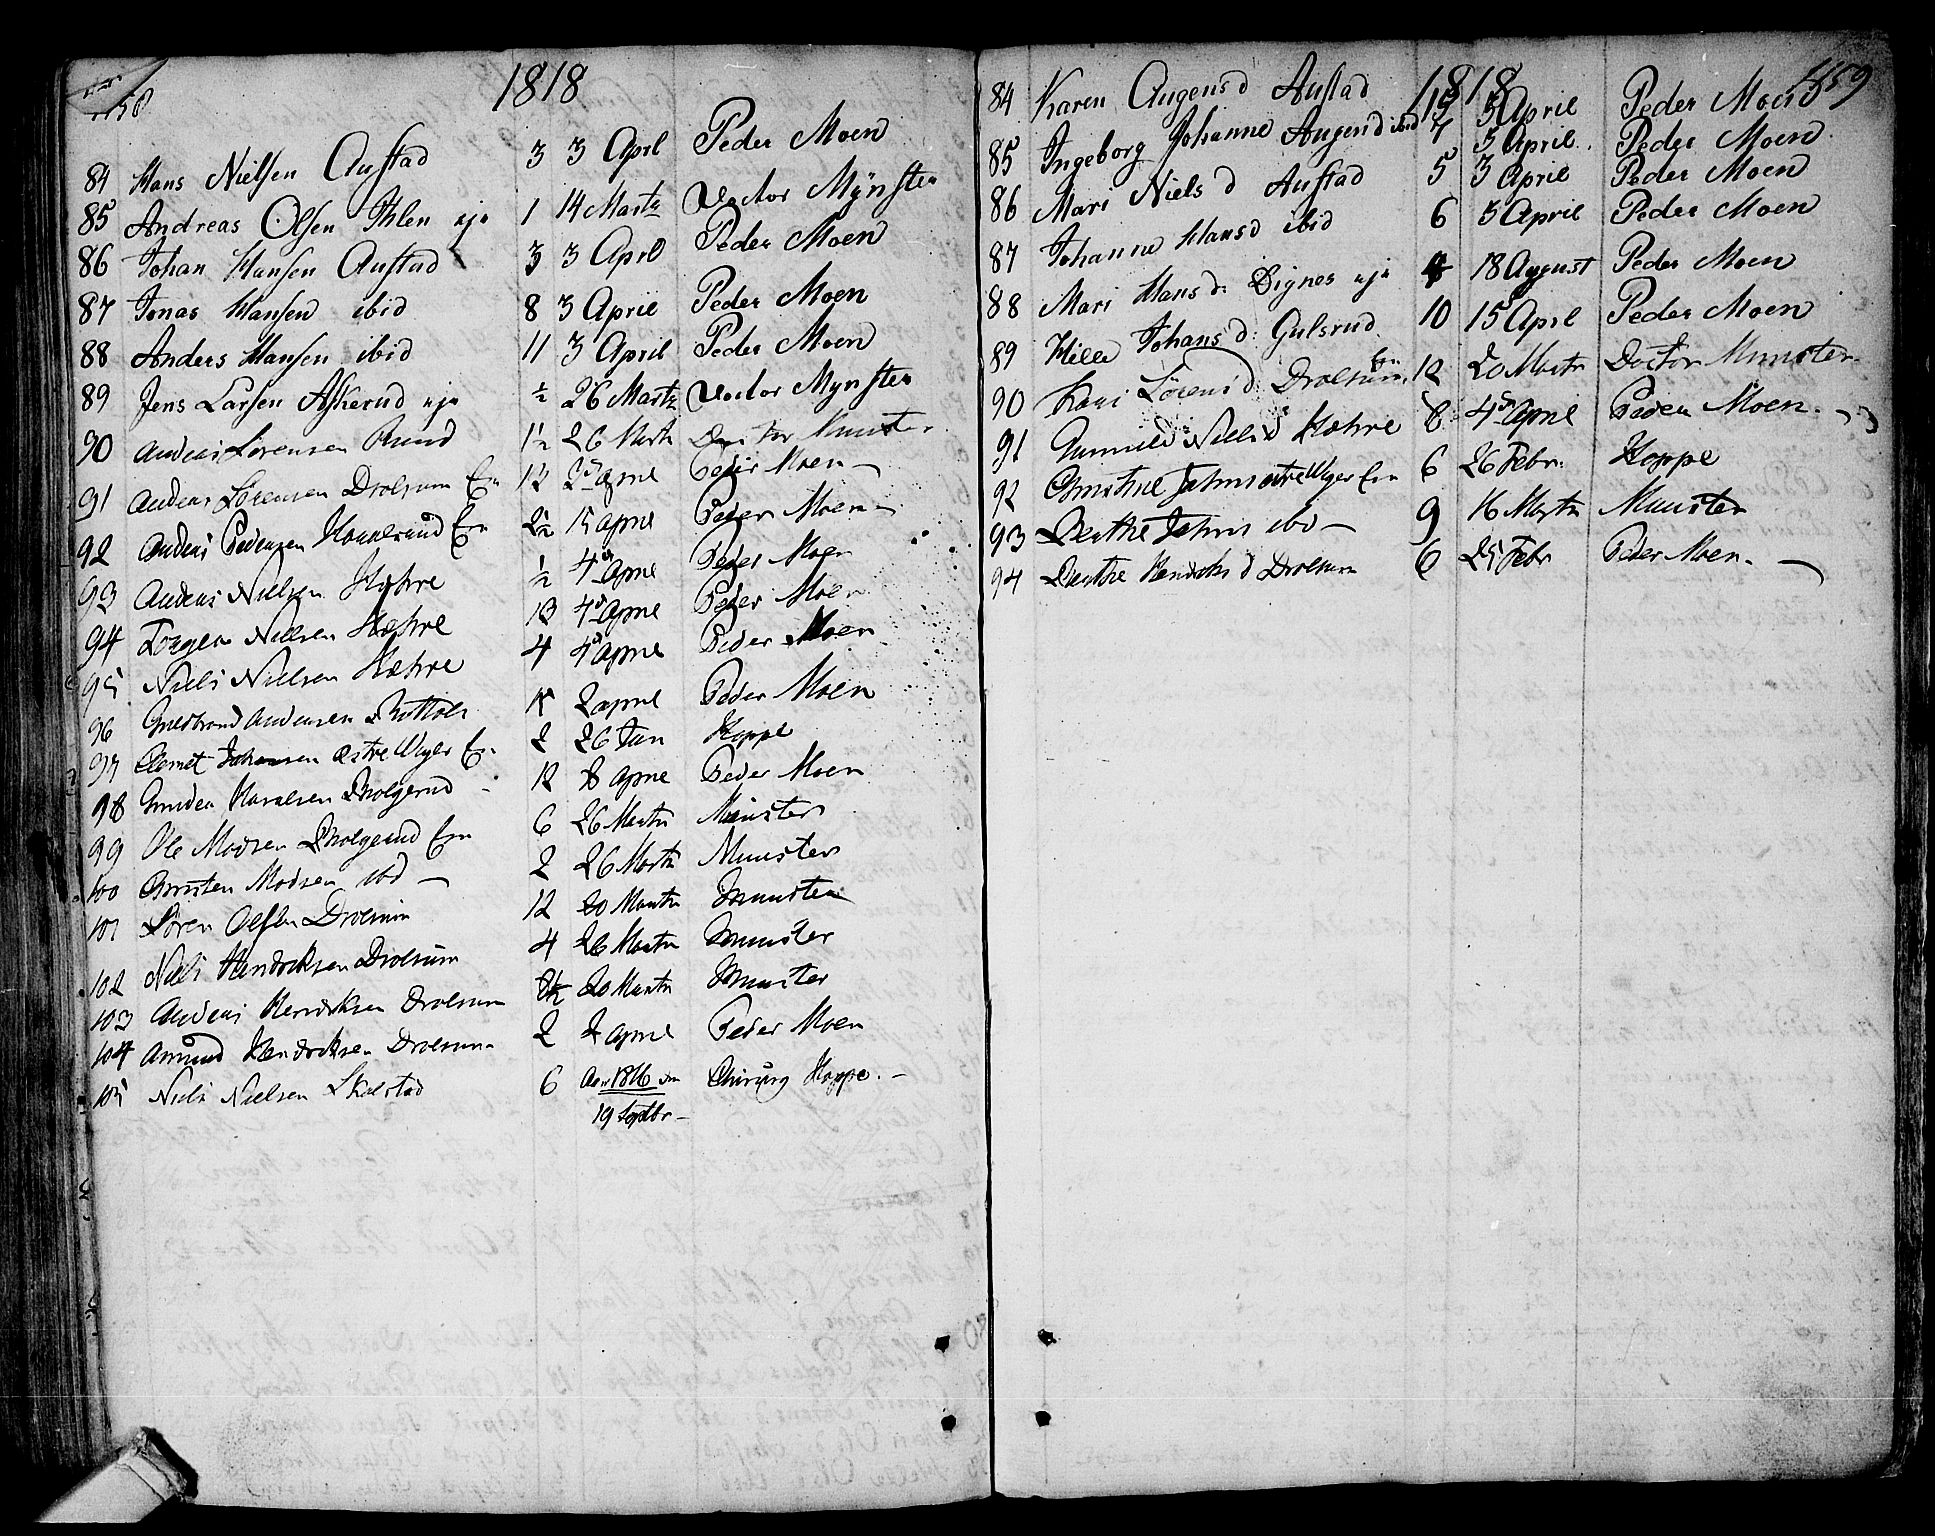 158
1818
84 Hans Nielsen Austad 3 3 April Peder Moen
85 Andreas Olsen Ihlen eje 1 14 Martz Doctor Mÿnster
86 Johan Hansen Austad 3 3 April Peder Moen
87 Jonas Hansen ibid 8 3 April Peder Moen
88 Anders Hansen ibid 11 3 April Peder Moen
89 Jens Larsen Askerud eje ½ 26 Martz Doctor Mynster
90 Anders Sørensen Ruud 1½ 26 Martz Doctor Munster
91 Anders Sørensen Drolsum Eie 1½ April Peder Moen
92 Anders Pedersen Eie 2½ 15 April Peder Moen
93 Anders Nielsen Hæhre ½ 4de April Peder Moen
94 Torgen Nielsen Hæhre 13 4de April Peder Moen
95 Niels Nielsen Hæhre 4 4de April Peder Moen
96 Guldbrand Andersen 2 April Peder Moen
97 Clemet Johannesen østre Viger Eie 2 26 Jan Hoppe
98 Gunder Haralsen 12 8 April Peder Moen
99 Ole Madsen Eie 6 26 Martz Münster
100 Christen Madsen ibd 2 26 Martz Munster
101 Søren Olssen Drolsum 12 20 Martz Munster
102 Niels Hendrichsen Drolsum 4 26 Martz Munster
103 Anders Hendrichsen Drolsum 20 Martz Munster
104 Amund Hendrichsen Drolsum 2 2 April Peder Moen
105 Niels Nielsen Skalstad 6 Aar 1816 den Chirurg Hoppe
19 Septbr
159
1818
84 Karen Augensd Austad 13 5 April Peder Moen
85 Ingeborg Johanne Augensd ibid 7 5 April Peder Moen
86 Mari Nielsd Austad 5 3 April Peder Moen
87 Johanne Hansd ibid 6 5 April Peder Moen
88 Mari Hansd: Dignes eje 4 18 August Peder Moen
89 Helle Johansd: Gulsrud 10 15 April Peder Moen
90 Kari Sørensd: Drolsum Eie 12 20 Martz Doctor Munster
91 Gunnild Nielsd Hæhre 8 4de April Peder Moen
92 Christine Johns østre Viger Eie 6 26 Febr: Hoppe
93 Berthe Johns ibd 9 16 Martz Munster
94 Berthe Hendrichsd Drolsum 6 25 Febr Peder Moen